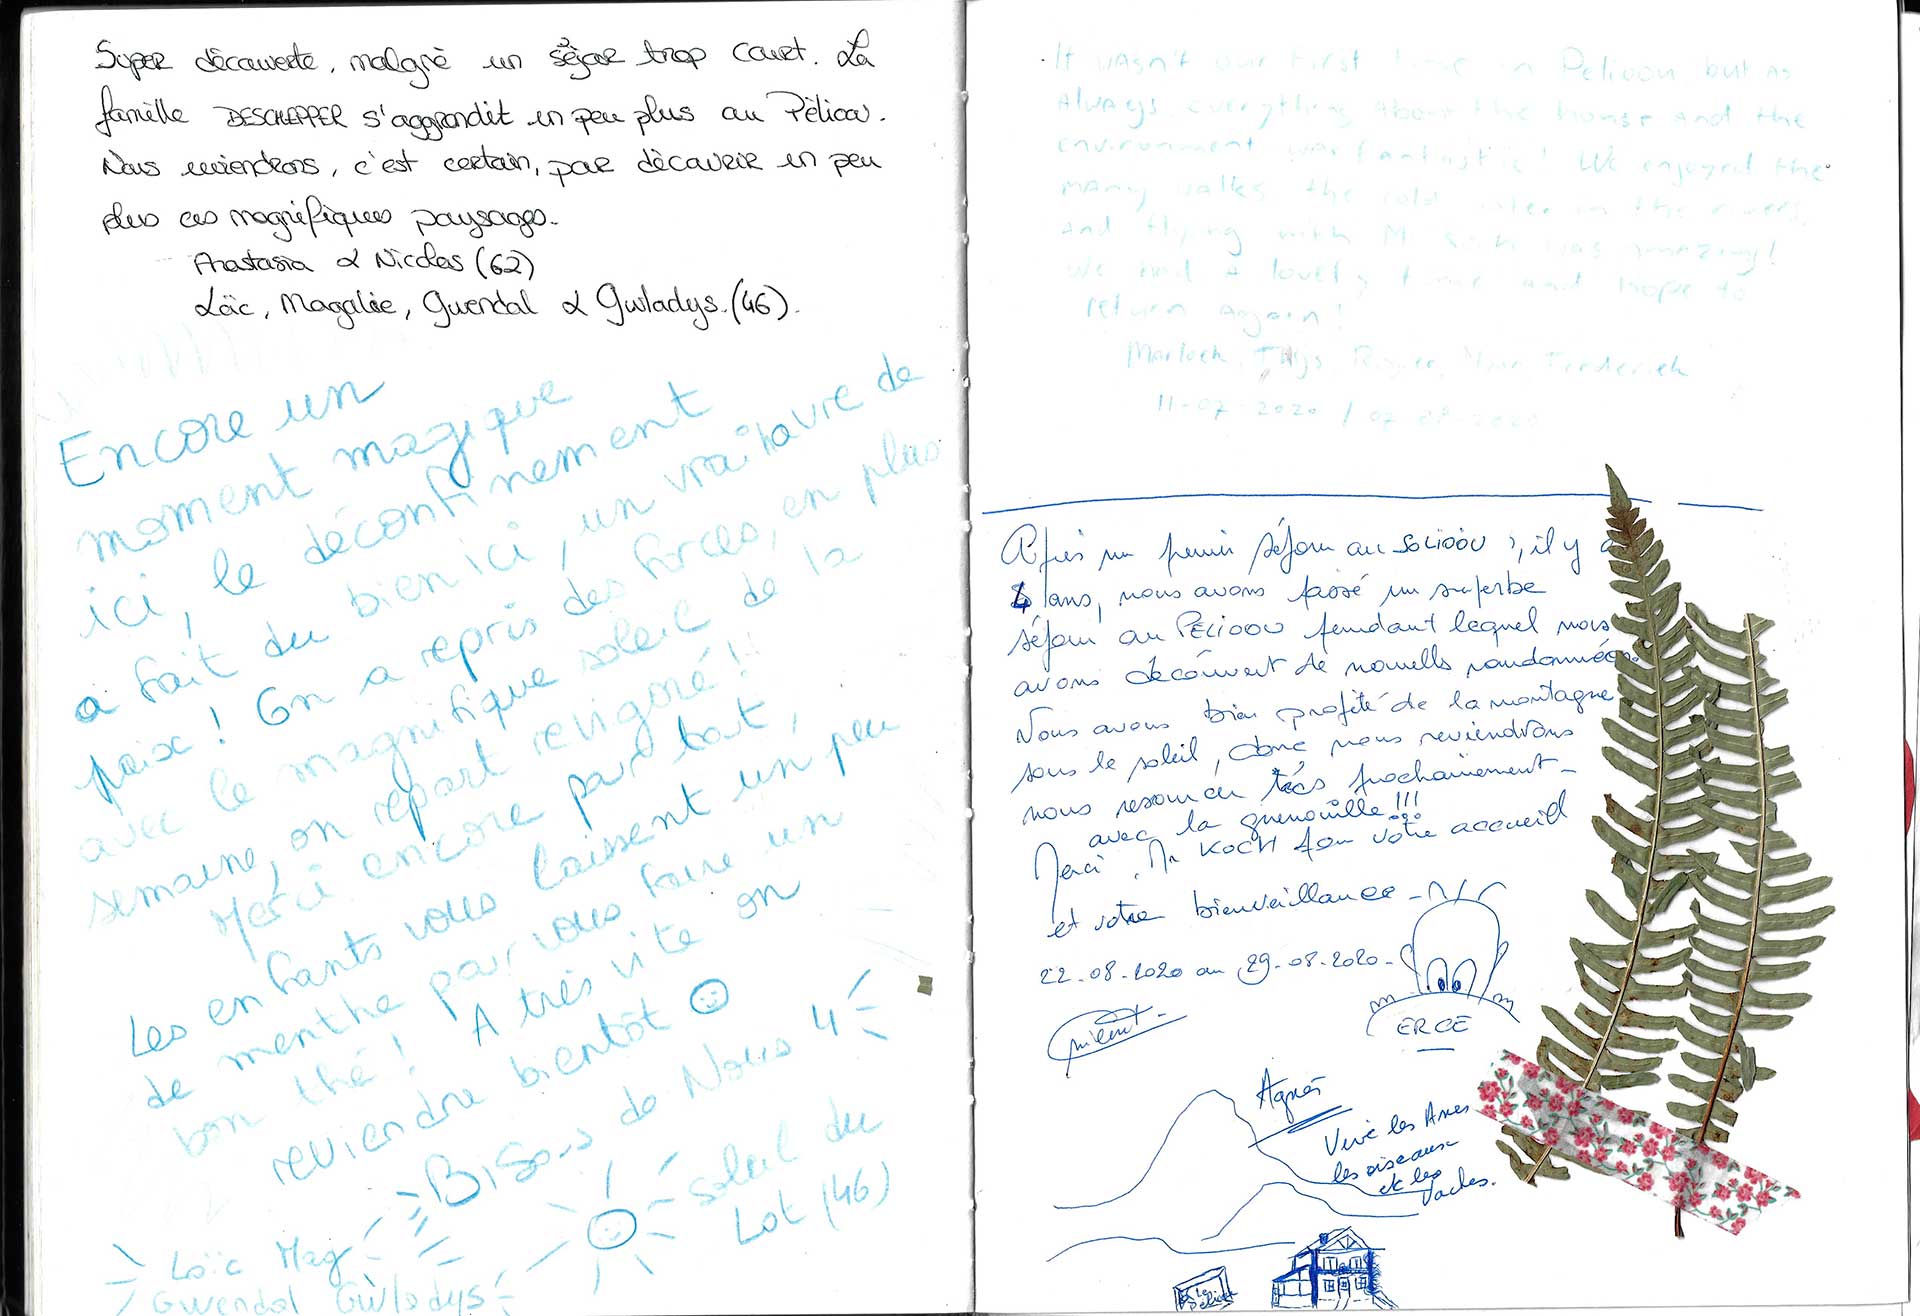 Super découverte, malgré un séjour trop court. La
famille DESCHEPPER s'aggrandit un peu plus au Pélioou.
Nous reviendrons, c'est certain, pour découvrir un peu
plus ces magnifiques paysages.
Anastasia & Nicolas (62)
Loïc, Magalie, Gwendal & Gwladys. (46).
Encore un
moment magique
ici, le déconfinement
a fait du bien ici, un vrai havre de
paix ! On a repris des forces, en plus
avec le magnifique soleil de la
semaine, on repart revigoré !
Merci encore pour tout,
Les enfants vous laissent un peu
de menthe pour vous faire un
bon thé ! A très vite on
reviendra bientôt
Bisous de Nous 4
soleil du
Lot (46)
Loïc Mag
Gwendal Gwladys
It wasn't our first time in Pelioou, but as
Always everything About the house And the
environment was fantastic! We enjoyed the
mAny walks, the cold water in the rivers
And flying with M was Amazing!
We had A lovely time and hope to
return Again!
Thijs Frederiek
11-07-2020 / 07 2020
Après un premier séjour au SOLIOOU, il y a
4 ans, nous avons passé un superbe
séjour au PELIOOU pendant lequel nous
avons découvert de nouvelles randonnées.
Nous avons bien profité de la montagne
sous le soleil, donc nous reviendrons
nous resourcer très prochainement -
avec la grenouille !!!
Merci, Mr KOCH pour votre accueil
et votre bienveillance -
22-08-2020 au 29-08-2020-
ERCE
Agnès
Vive les Anes
les oiseaux
et les
Vaches.
Le
Pélioou